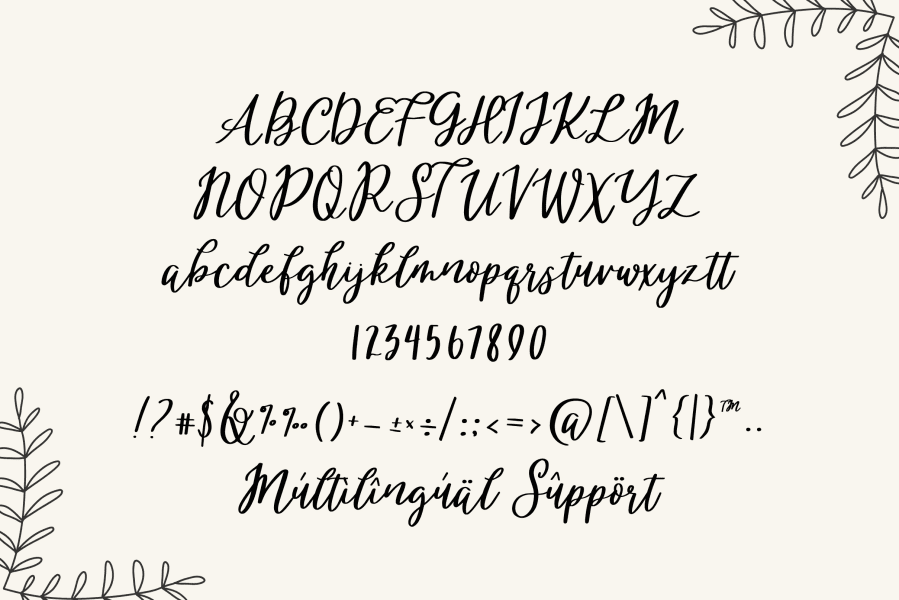 ABCDEFGHIJKLM
NOPQRSTUVWXYZ
abcdefghijklmnopqrstuvwxyztt
1234567890
!?#$&%‰()+− ±×÷/:;<=>@[\]^{|}™..
Múltìlîngúäl Sûppört